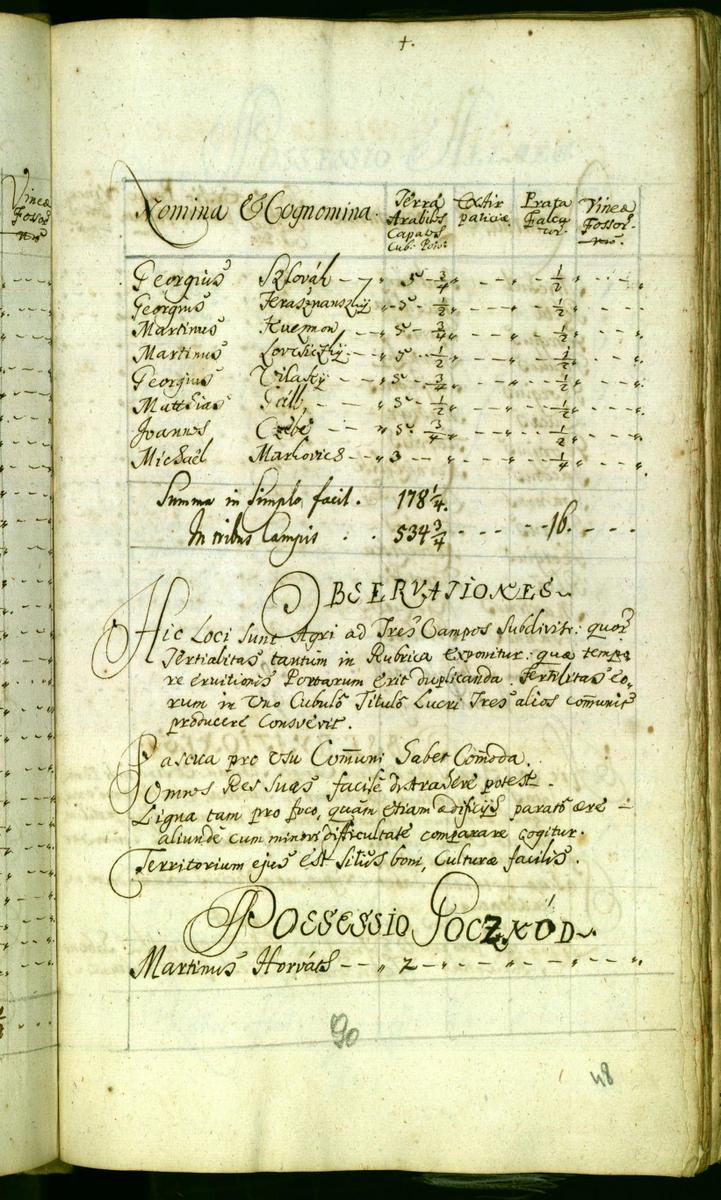 +.
Vineæ
Fossor.
Nomina & Cognomina. Terræ Arabiles Capaces Cub: Pos: Extirpaticiæ Prata Falcator. Vineæ Fossor.
Georgius 5 3/4 1/2
Georgius 5 1/2 1/2
Martinus 5 3/4 1/2
Martinus 5 1/2 1/2
Georgius 5 3/4 1/2
Matthias 5 1/2 1/2
Joannes Czebe 5 3/4 1/2
Michaël Markovics 3 1/4
Summa in Simplo facit. 178 1/4.
In tribus Campis 534 3/4 16.
OBSERVATIONES
Hic Loci sunt Agri ad Tres Campos Subdivisi: quor
Tertialitas tantum in Rubrica exponitur: quæ tempo
re eruitionis Portarum erit duplicanda. Fertilitas eo-
rum in Uno Cubulo Titulo Lucri Tres alios com̅unit
producere Consvevit.
Pascua pro Usu Com̅uni habet Com̅oda.
Omnes Res Suas facile distrahere potest.
Ligna tam pro foco, quam etiam ædificijs parato ære
aliunde cum minori difficultate comparare cogitur.
Territorium ejus est sitûs boni, Culturæ facilis.
POSSESSIO POCZKÓD
Martinus Horváth 2
90
48